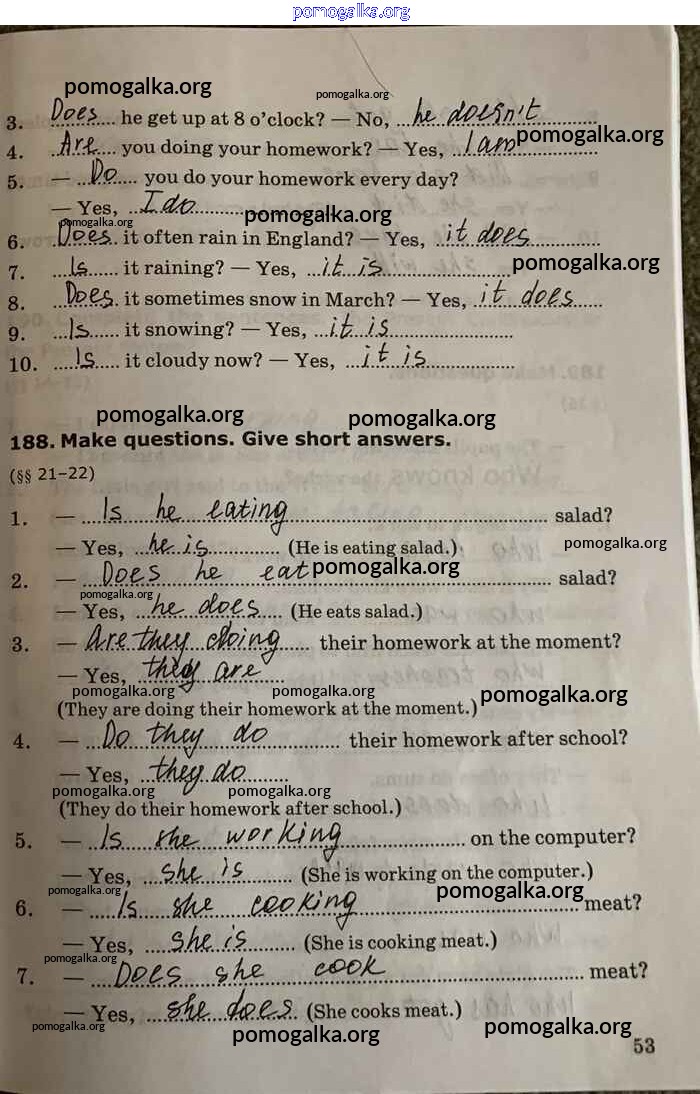 pomogalka.org
pomogalka.org
pomogalka.org
3. Does he get up at 8 o'clock? — No, he doesn't
pomogalka.org
4. Are you doing your homework? — Yes, I am
5. — Do you do your homework every day?
— Yes, I do
pomogalka.org
pomogalka.org
6. Does it often rain in England? — Yes, it does
pomogalka.org
7. Is it raining? — Yes, it is
8. Does it sometimes snow in March? — Yes, it does
9. Is it snowing? — Yes, it is
10. Is it cloudy now? — Yes, it is
pomogalka.org
pomogalka.org
188. Make questions. Give short answers.
(§§ 21–22)
1. — Is he eating salad?
— Yes, he is (He is eating salad.)
pomogalka.org
pomogalka.org
2. — Does he eat salad?
pomogalka.org
— Yes, he does (He eats salad.)
3. — Are they doing their homework at the moment?
— Yes, they are
pomogalka.org
pomogalka.org
pomogalka.org
(They are doing their homework at the moment.)
4. — Do they do their homework after school?
— Yes, they do
pomogalka.org
pomogalka.org
(They do their homework after school.)
5. — Is she working on the computer?
— Yes, she is (She is working on the computer.)
pomogalka.org
pomogalka.org
6. — Is she cooking meat?
— Yes, she is (She is cooking meat.)
pomogalka.org
7. — Does she cook meat?
— Yes, she does. (She cooks meat.)
pomogalka.org
pomogalka.org
pomogalka.org
53